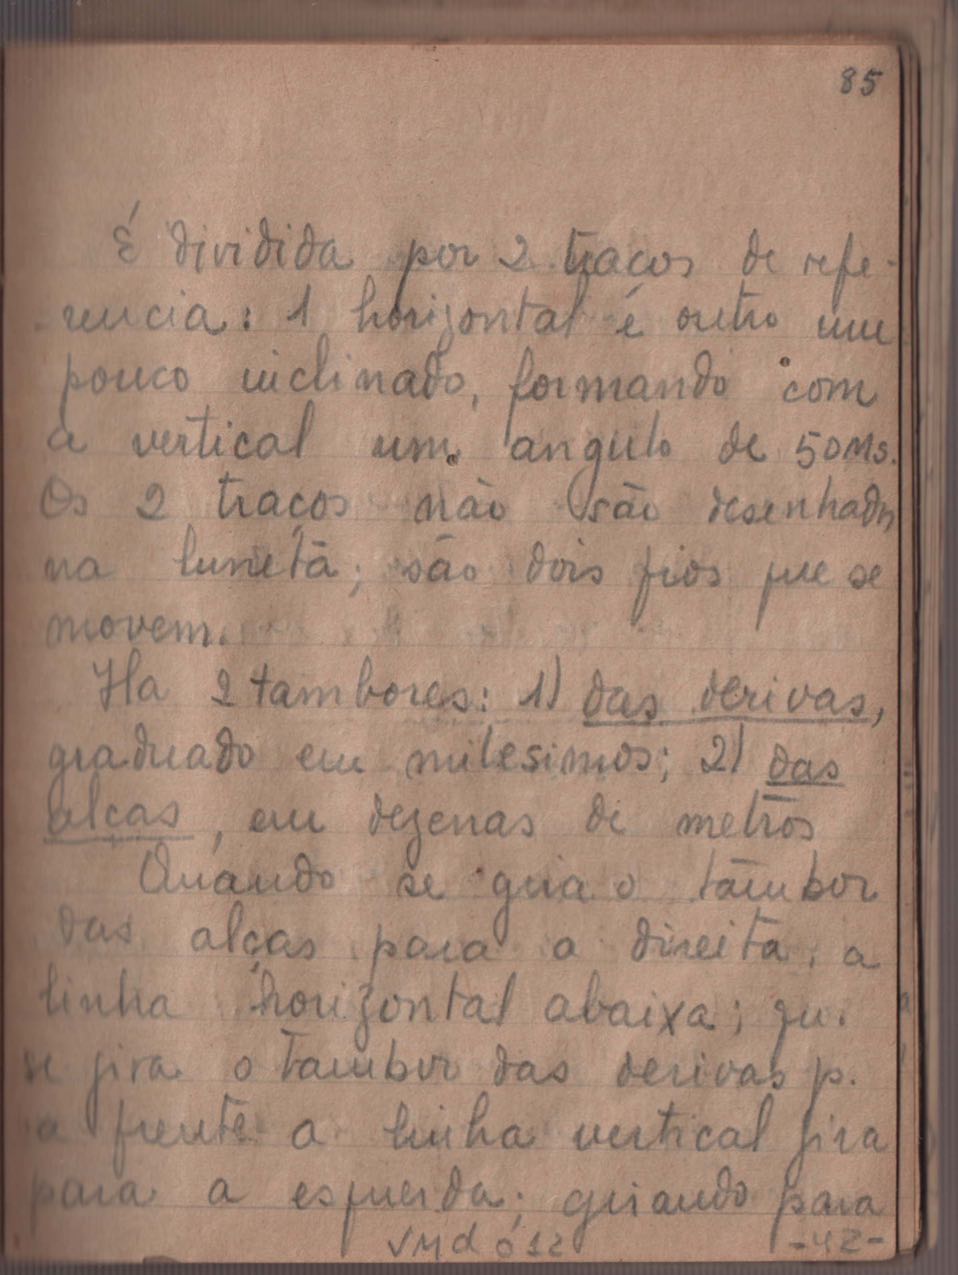 85
É dividida por 2 traços de refe-
rencia: 1 horizontal é outro um
pouco inclinado, formando com
a vertical um angulo de 50Ms.
Os 2 traços não são desenhados
na luneta; são dois fios que se
movem.
Ha 2 tambores: 1) das derivas,
graduado em milesimos; 2) das
alcas, em dezenas de metros
Quando se gira o tambor
das alças para a direita, a
linha horizontal abaixa; qu.
se gira o tambor das derivas p.
a frente a linha vertical gira
para a esquerda; girando para
-42-